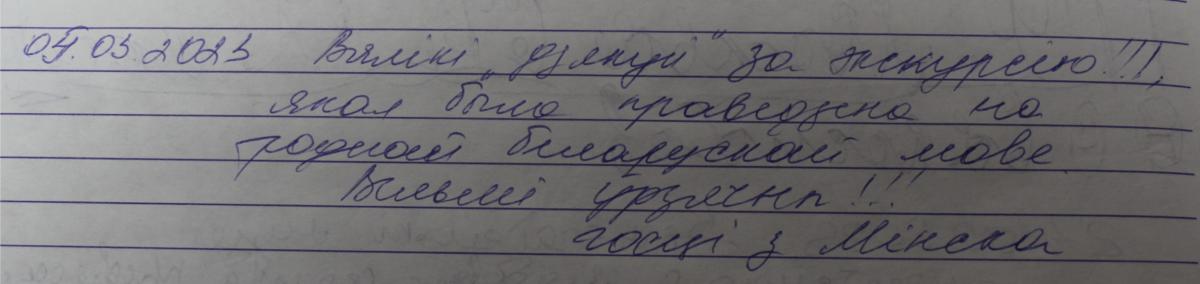 05.03.2023 Вялікі „дзякуй" за экскурсію!!!,
якая была праведзена на
роднай беларускай мове
Вельмі ўдзячны!!!
госці з Мінска